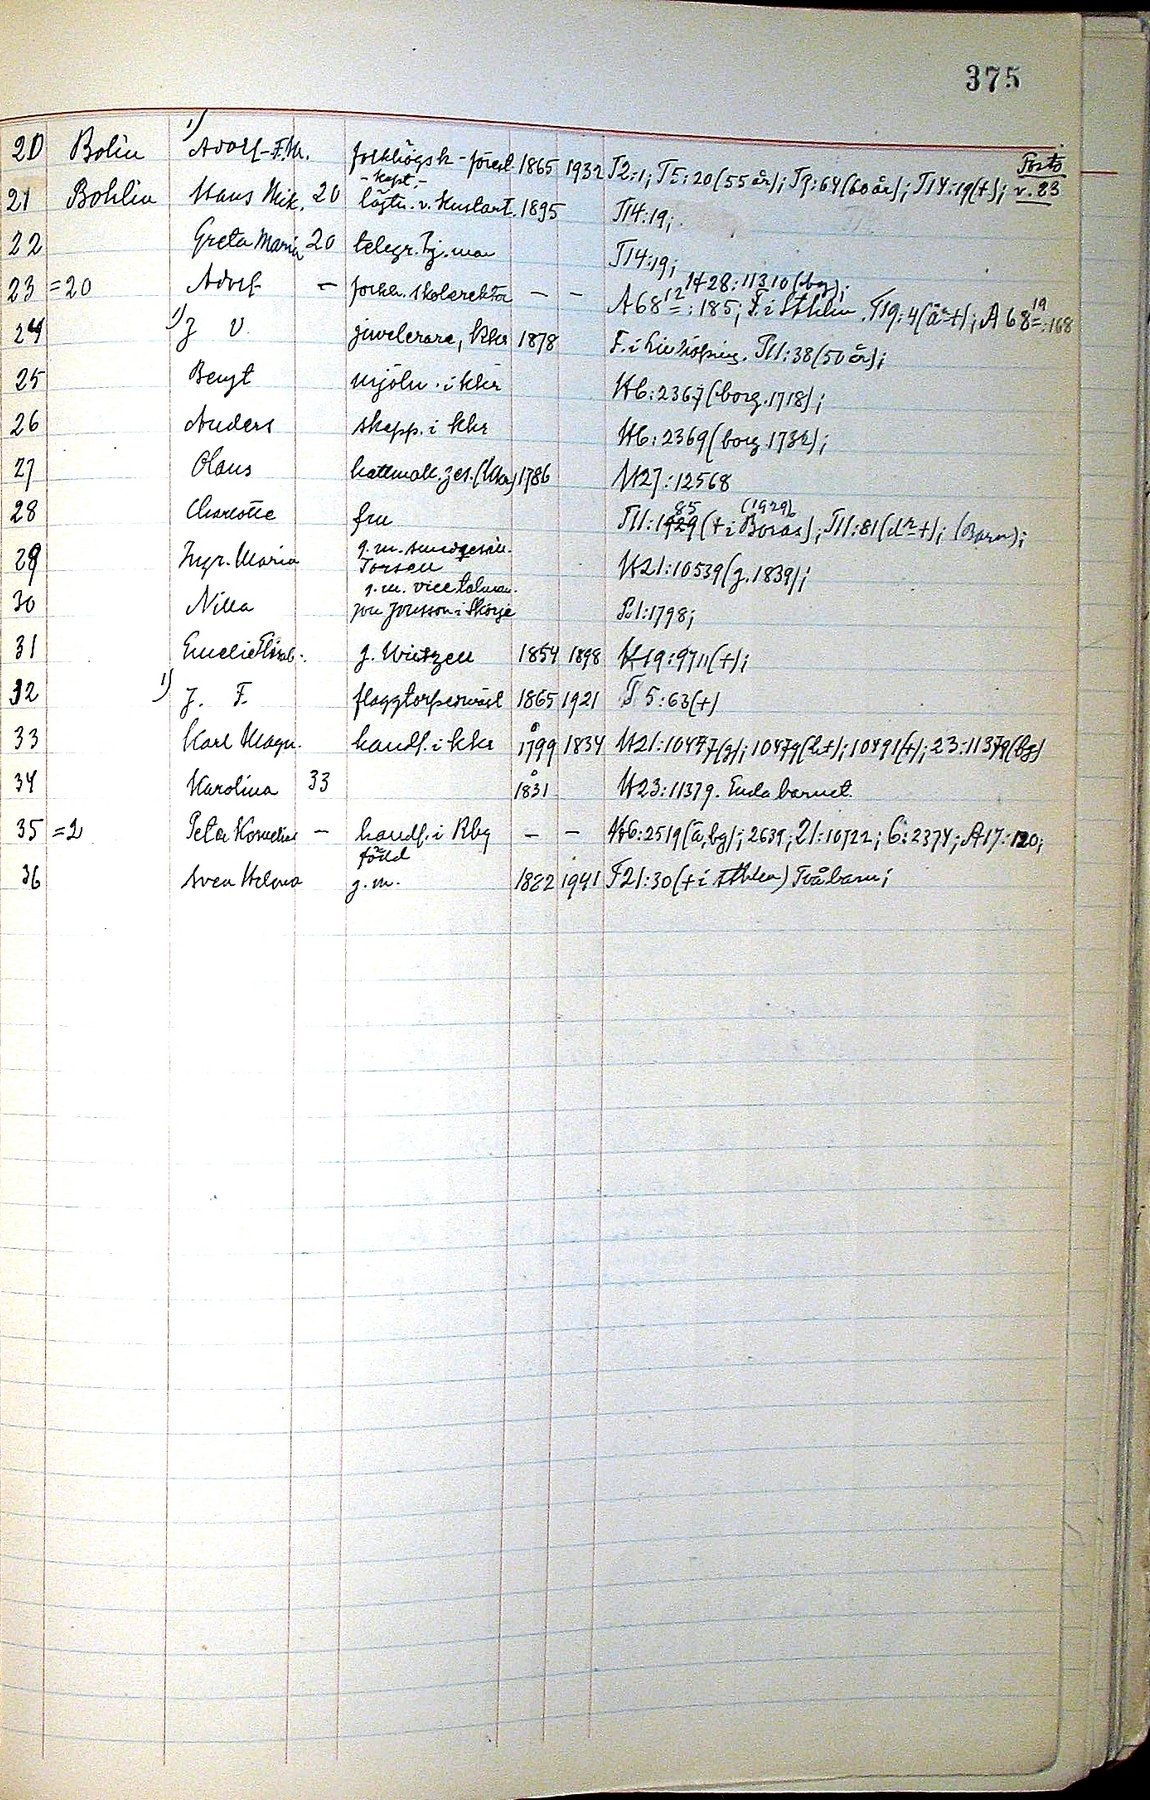 375
20 Bolin 1) Adolf F.M. folkhögsk-förest. 1865 1932 T2:1; T5:20(55 år); T9:64(60 år); T14:19(+); Forts v. 23
21 Bohlin Hans Nik. 20 -kapt.- löjtn. v. Kustart. 1895 T14:19;
22 Greta Maria 20 telegr.tj.man T14:19;
23 =20 Adolf — skolrektor — — A68 12:185; F. i Sthlm. T19:4(+); A68 19:168 H28:11310(bg);
24 1) J V. juvelerare, Kkr 1878 F. i Linköping. T11:38(50 år);
25 Bengt mjöln. i kkr H6:2367(borg.1718);
26 Anders skepp. i kkr H6:2369(borg.);
27 Olaus hattmak.ges.(Ukr) 1786 H27:12568
28 Charlotte fru T11:85 (+ i Borås) (1929); T11:81(+); (Barn);
29 Ingr. Maria g.m. Torsell H21:10539(g.1839);
30 Nilla g.m. vice talman. Jöns Jönsson i 1:1798;
31 Emelie g. Wintzell 1854 1898 H19:9711(+);
32 1) J. F. flaggtorpedmäst 1865 1921 T5:63(+)
33 Karl Magn. handl. i kkr 1799 1834 H21:10477(g); 10479(+); 10491(+); 23:11379(bg)
34 Karolina 33 1831 H23:11379. Enda barnet.
35 =2 Peter Kornelius — handl. i Rby — — H6:2519(ä, bg); 2639; 21:10522; 6:2374; A17:120;
36 Svea Helena född g.m. 1882 1941 T21:30(+ i Sthlm) Två barn;